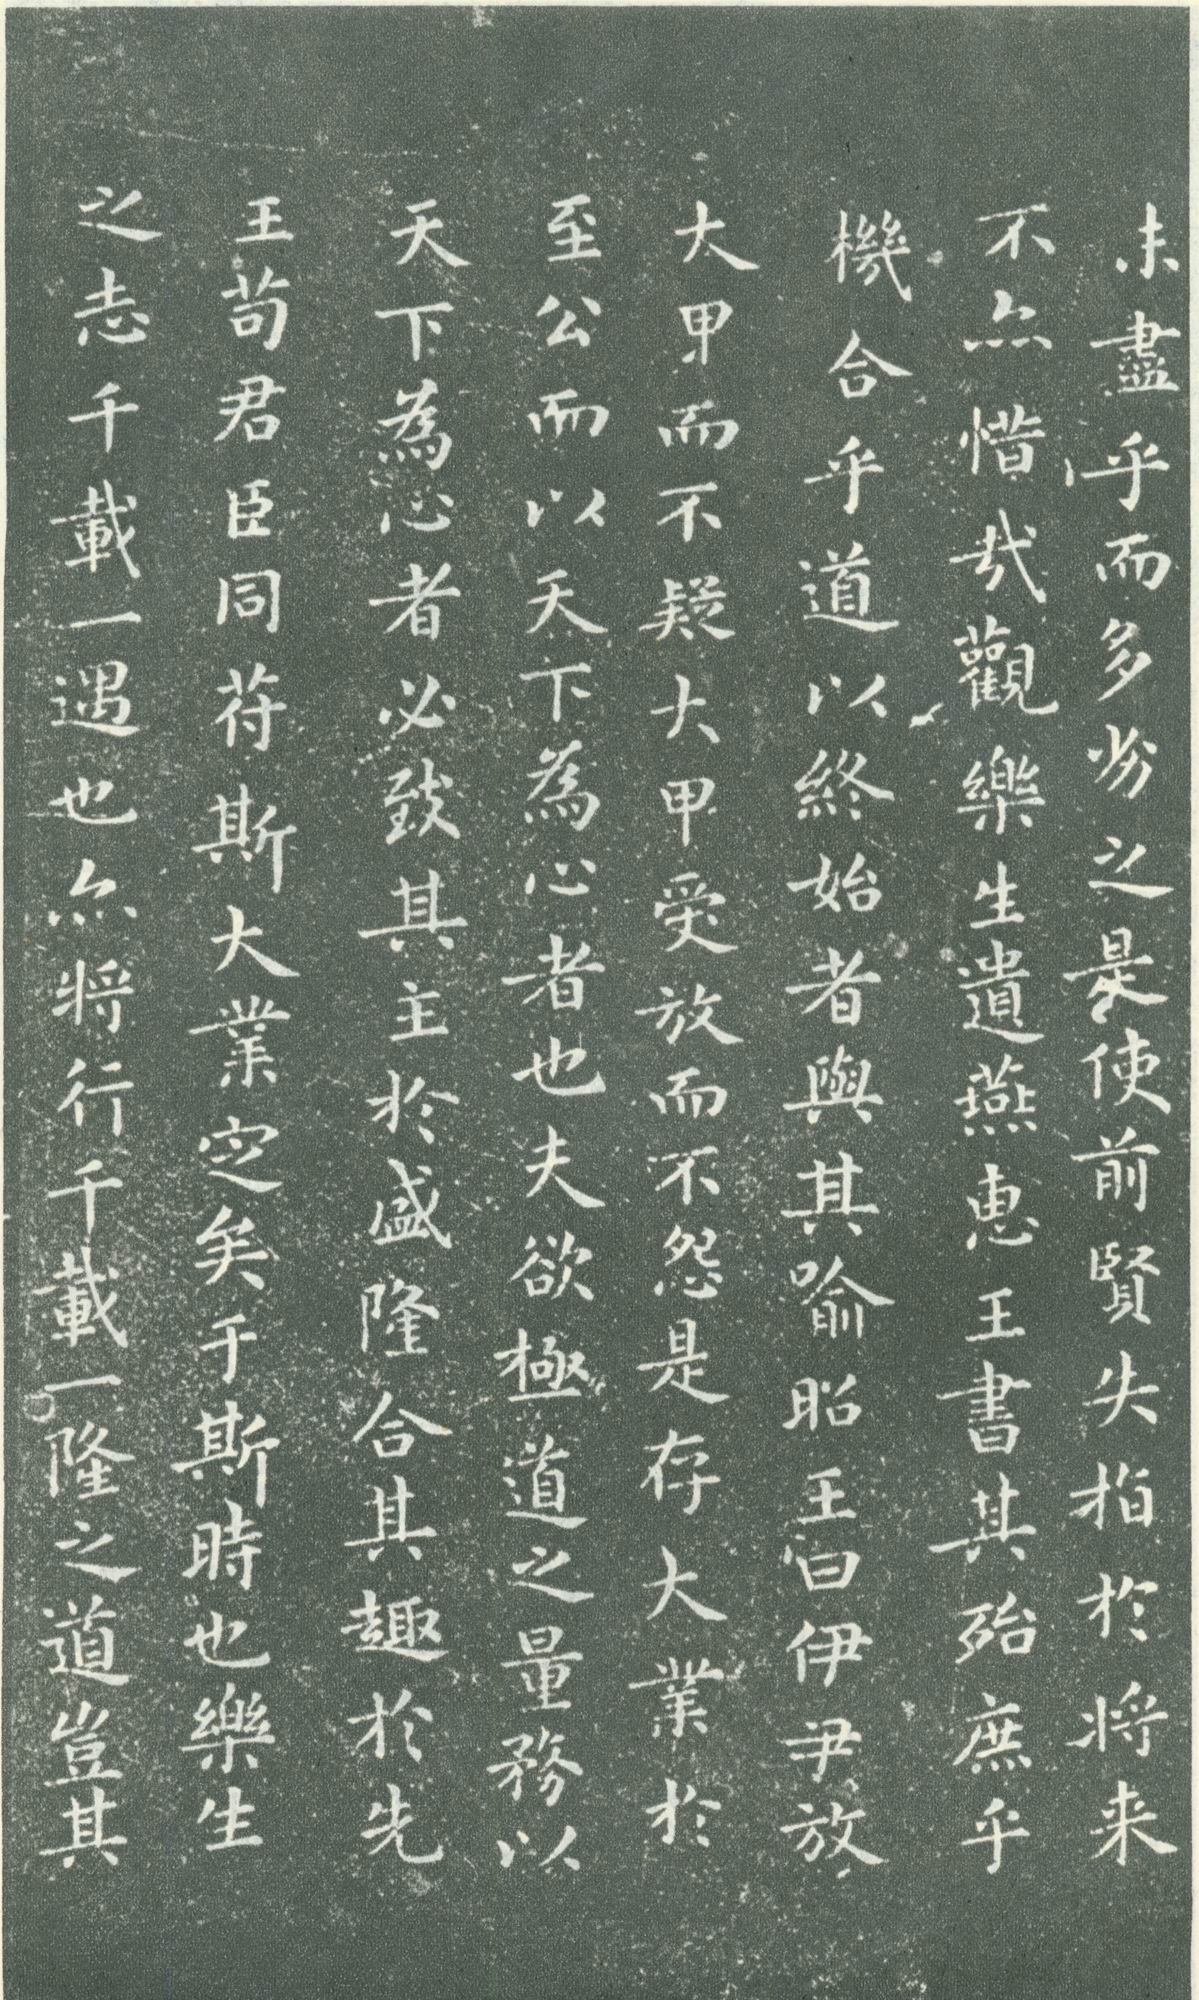 未盡乎而多劣之是使前賢失指於將来
不亦惜哉觀樂生遺燕惠王書其殆庶乎
機合乎道以終始者與其喻昭王曰伊尹放
大甲而不疑大甲受放而不怨是存大業於
至公而以天下為心者也夫欲極道之量務以
天下為心者必致其主於盛隆合其趣於先
王苟君臣同符斯大業定矣于斯時也樂生
之志千載一遇也亦將行千載一隆之道豈其